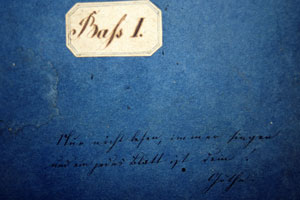 Baſs I.
Nur nicht lesen, immer singen
und ein jedes Blatt ist dein!
Göthe